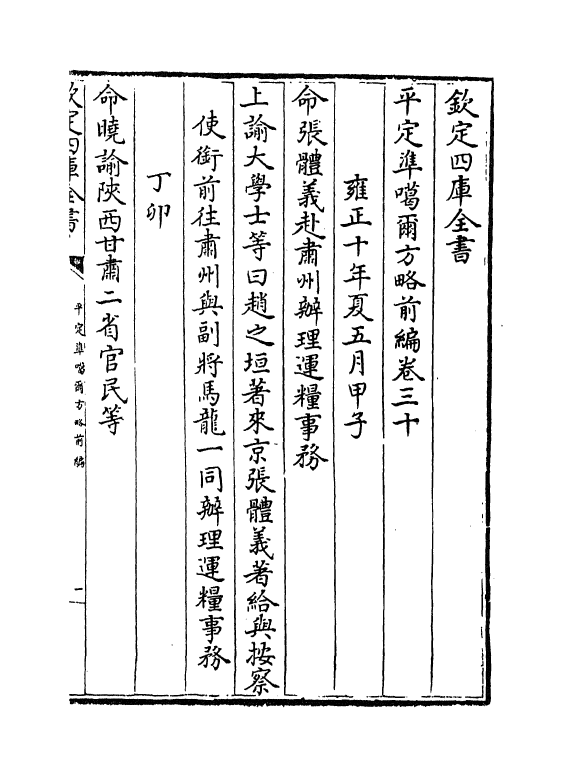 欽定四庫全書
平定準噶爾方略前編卷三十
雍正十年夏五月甲子
命張體義赴肅州辦理運糧事務
上諭大學士等曰趙之垣著來京張體義著給與按察
使銜前往肅州與副將馬龍一同辦理運糧事務
丁卯
命曉諭陜西甘肅二省官民等
欽定四庫全書
平定準噶爾方略前編
一